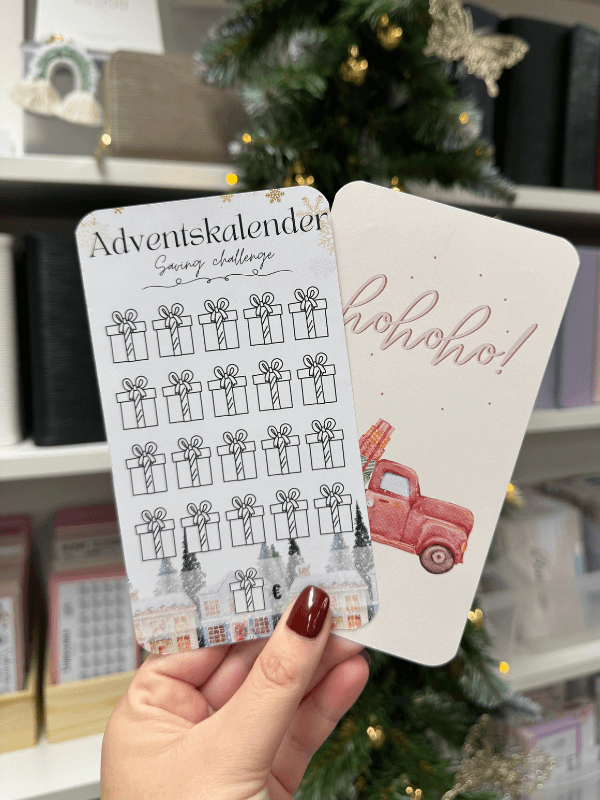 Adventskalender
Saving challenge
hohoho!
€